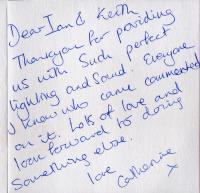 Dear Ian & Keith
Thankyou for providing
us with such perfect
lighting and sound. Everyone
I know who came commented
on it. Lots of love and
look forward to doing
something else.
love
Catherine
x